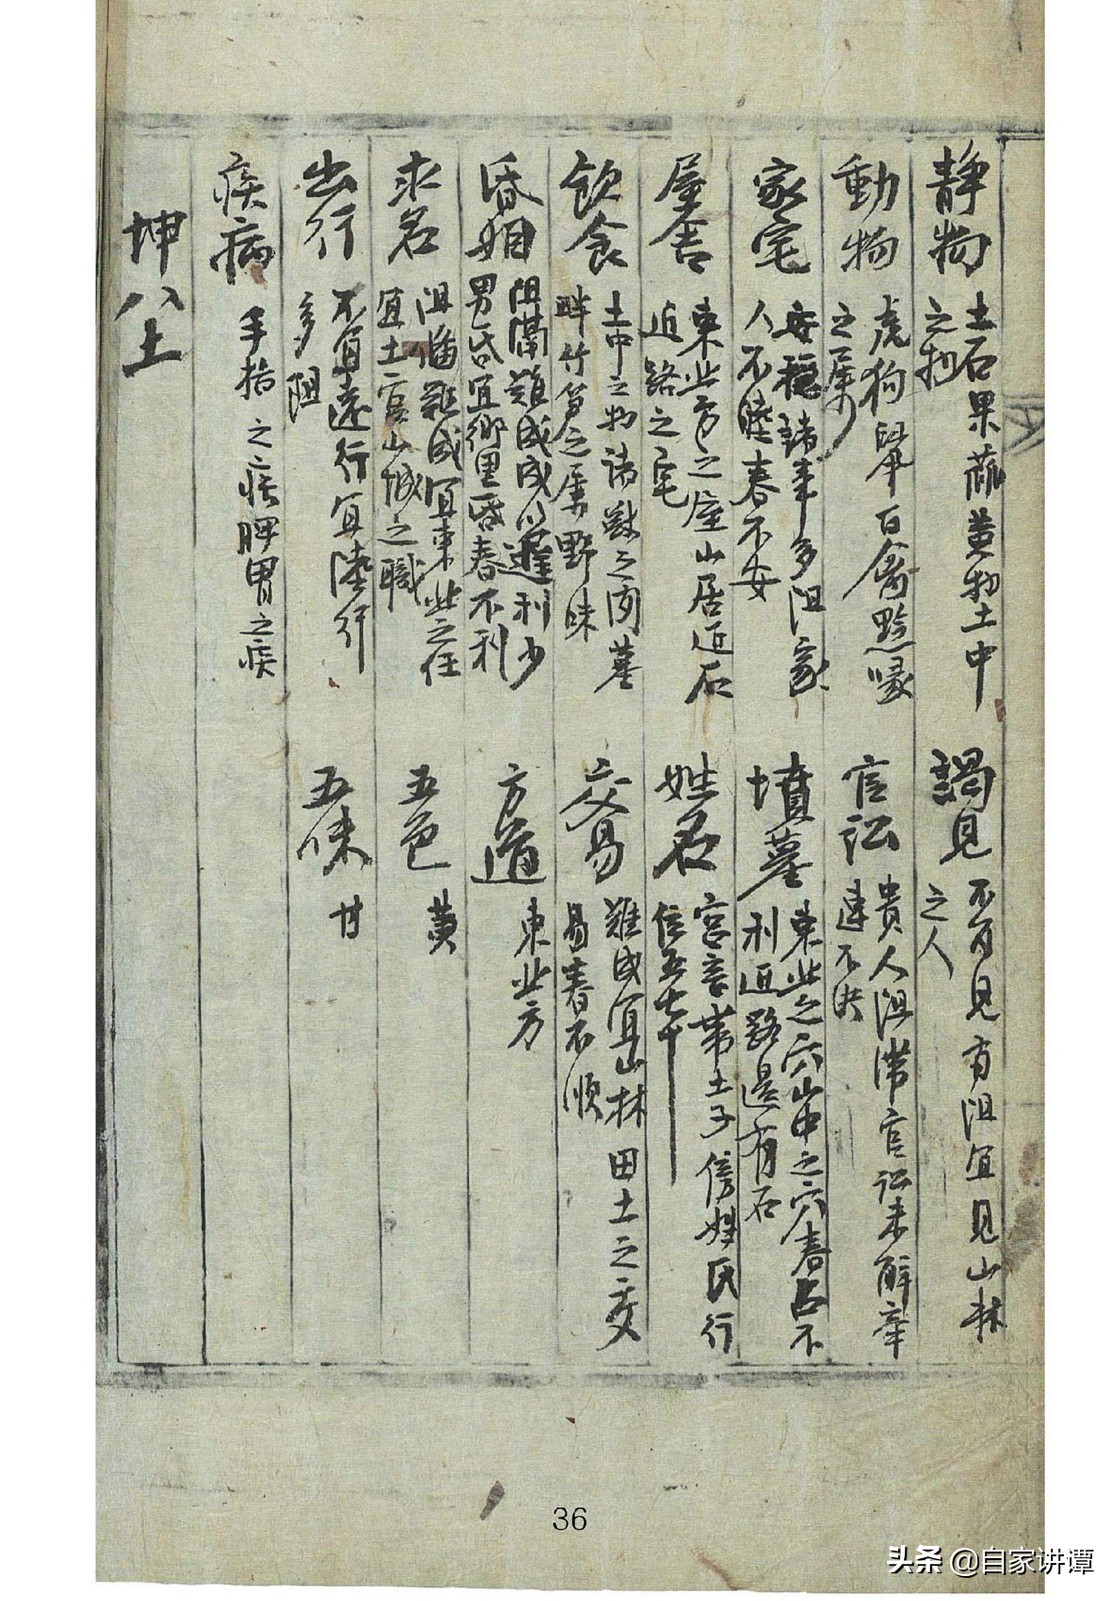 靜物 土石果蓏黃物土中
之物
謁見 不可見有阻宜見山林
之人
動物 虎狗鼠百禽黔喙
之属
官訟 貴人阻滯官訟未解牽
連不决
家宅 安穩諸事多阻家
人不睦春不安
墳墓 東北之穴山中之穴春占不
利近路邊有石
屋舍 東北方之屋山居近石
近路之宅
姓名 宮音帶土子傍姓氏行
位五七十
飲食 土中之物諸獸之肉墓
畔竹笋之属野味
交易 難成宜山林田土之交
易春不順
昏姻 阻隔難成成以遲利少
男昏宜鄉里昏春不利
方道 東北方
求名 阻滯難成宜東北之任
宜土官山城之職
五色 黃
出行 不宜遠行宜陸行
多阻
五味 甘
疾病 手指之疾脾胃之疾
坤八土
36
头条 @自家讲谭